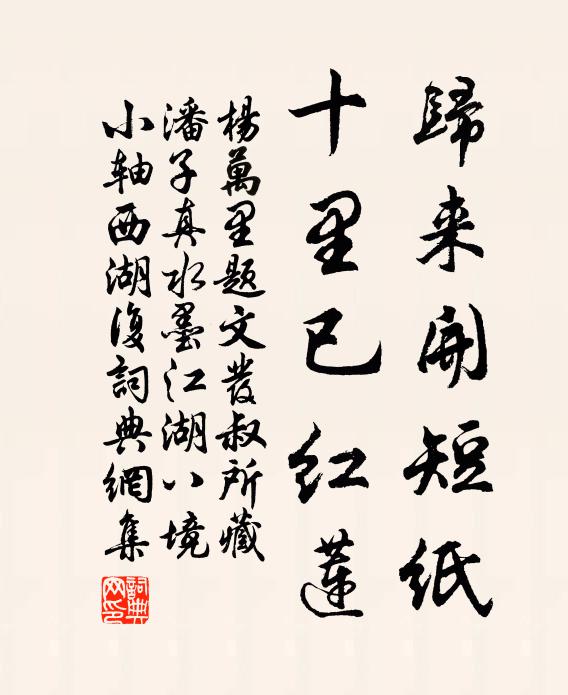 歸来開短紙
十里已紅蓮
楊萬里題文發叔所藏
潘子真水墨江湖八境
小轴西湖復詞典網集
詞典
网印